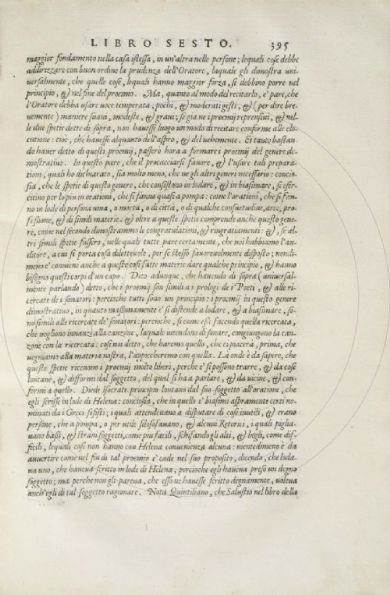 LIBRO SESTO. 395
maggior fondamento nella casa istessa, in un'altra nelle persone; lequali cose debbe
addirizzare con buon ordine la prudenza dell'Oratore, laquale gli dimostra uni-
uersalmente, che quelle cose, lequali hanno maggior forza, si debbono porre nel
principio, & nel fine del proemio. Ma, quanto al modo del recitarlo, e' pare, che
l'Oratore debba usare uoce temperata; pochi, & moderati gesti, & (per dire breue-
mente) maniere soaui, modeste, & graui; se gia ne i proemij reprensiui, & nel-
le due spetie dette di sopra, non hauesse luogo un modo di recitare conforme alla elo-
cutione: cioè, che hauesse alquanto dell'aspro, & del uehemente. Et tanto bastan-
do hauer detto di questi proemij, passerò hora a formare i proemij del genere di-
mostratiuo. In questo pare, che il procacciarsi fauore, & l'usare tali preparat-
ioni, quali ho dichiarato, sia molto meno, che ne gli altri generi necessario: concio-
sia, che le spetie di questo genere, che consistono in lodare, & in biasimare, si eser-
citino per lo piu in orationi, che si fanno quasi a pompa: come l'orationi, che si fan-
no in lode di persona uiua, o morta, o di città, o di qualche consuetudine, arte, pro-
fessione, & di simili materie: & oltre a queste spetie comprende anche questo gene-
re, come nel secondo dimostrammo le congratulationi, & ringratiamenti: & se al-
tri simili spetie fussero, nelle quali tutte pare certamente, che noi habbiamo l'au-
ditore, a cui si porta cosa diletteuole, per se stesso fauoreuolmente disposto: nondi-
meno e' conuiene anche a queste cosi fatte materie dare qualche principio, & hanno
bisogno questi corpi d'un capo. Dico adunque, che hauendo di sopra (uniuersal-
mente parlando) detto, che i proemij son simili a i prologi de i Poeti, & alle ri-
cercate de i sonatori: percioche tutti sono un principio: i proemij in questo genere
dimostratiuo, in quanto massimamente e' si distende a lodare, & a biasimare, so-
no simili alle ricercate de' sonatori: percioche, si come essi facendo quella ricercata,
che uogliono innanzi alla canzone, laquale intendono di sonare, congiungono la can-
zone con la ricercata: cosi noi detto, che haremo quello, che ci piacerà, prima, che
uegniamo alla materia nostra, l'appiccheremo con quella. La onde è da sapere, che
queste spetie riceuono i proemij molto liberi, perche e' si possono trarre, & da cose
lontane, & difformi dal soggetto, del quale si ha a parlare, & da uicine, & con-
formi a quello. Diede Isocrate principio lontano dal suo soggetto all'oratione, che
egli scrisse in lode di Helena: conciosia, che in quello e' biasimi aspramente certi no-
minati da i Greci sofisti; i quali attendeuano a disputare di cose inutili, & erano
persone, che a pompa, o per utile sofisticauano, & alcuni Retori, i quali pigliauano
bassi, & strani soggetti, come piu facili, schifando gli alti, & begli, come dif-
ficili, lequali cose non hanno con Helena conuenienza alcuna: nientedimeno e' da
auuertire come nel fin di tal proemio e' cade nel suo proposito, dicendo, che loda-
ua uno, che haueua scritto in lode di Helena, percioche egli haueua preso un degno
soggetto; ma perche non gli pareua, che esso ne hauesse scritto degnamente, uoleua
anch'egli di tal soggetto ragionare. Nota Quintiliano, che Salustio nel libro della